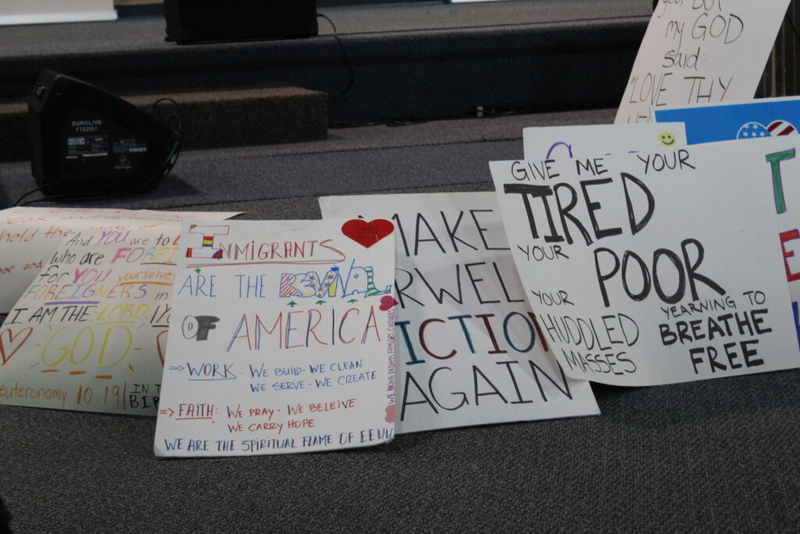 my GOD
said:
"LOVE THY
EUROLIVE
F1320D
And YOU are to
who are
for YOU YOURSELVES
FOREIGNERS in
I AM THE LORD
GOD
10:19
IN T
IMMIGRANTS
ARE THE RENEWAL
OF AMERICA
⇒ WORK: WE BUILD - WE CLEAN
WE SERVE - WE CREATE
⇒ FAITH: WE PRAY - WE BELEIVE
WE CARRY HOPE
WE ARE THE SPIRITUAL FLAME OF
MAKE
RWEL
ICTIO
AGAIN
GIVE ME YOUR
TIRED
YOUR
POOR
YOUR
HUDDLED
MASSES
YEARNING TO
BREATHE
FREE
T
E